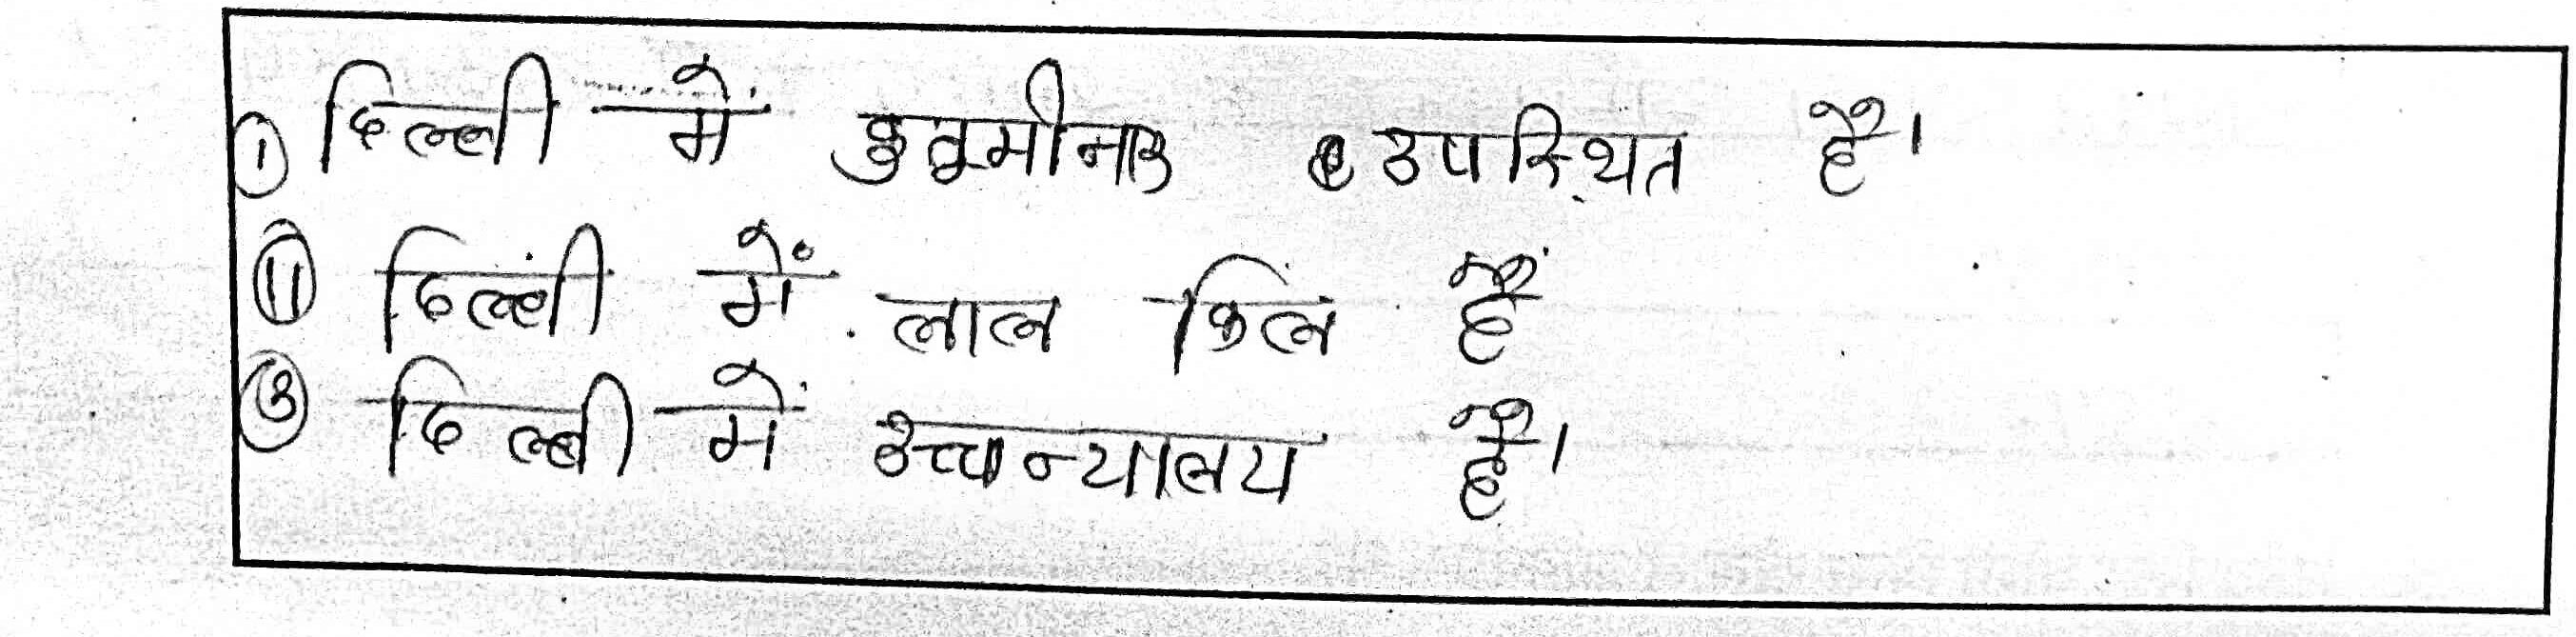 ① दिल्ली में कुतुमीनार उपस्थित है।
⑪ दिल्ली में लाल किल हैं
③ दिल्ली में उच्चन्यालय है।